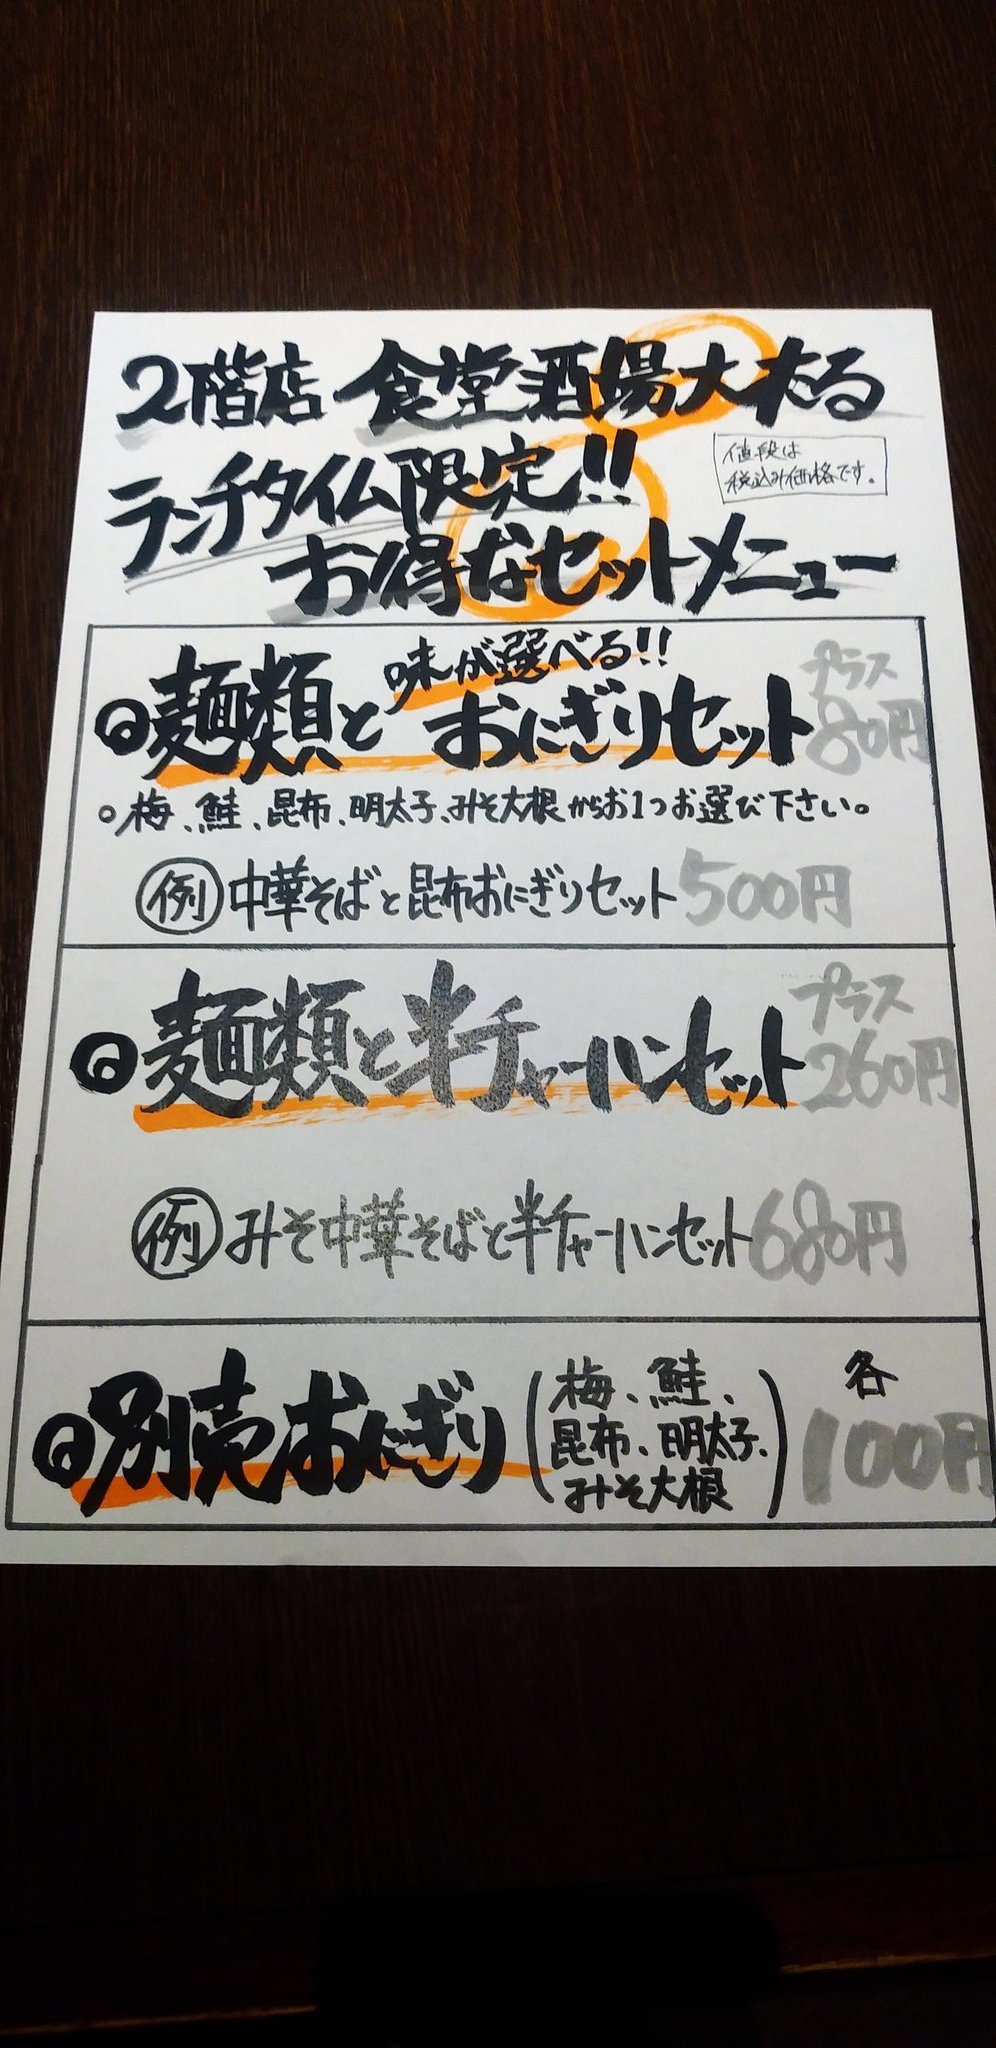 2階店 食堂酒場大はる
値段は
税込み価格です。
ランチタイム限定!!
お得なセットメニュー
味が選べる!!
◎麺類と おにぎりセット プラス80円
○梅、鮭、昆布、明太子、みそ大根からお1つお選び下さい。
例 中華そばと昆布おにぎりセット500円
◎麺類と半チャーハンセット プラス260円
例 みそ中華そばと半チャーハンセット680円
◎別売おにぎり(梅、鮭、昆布、明太子、みそ大根) 各100円